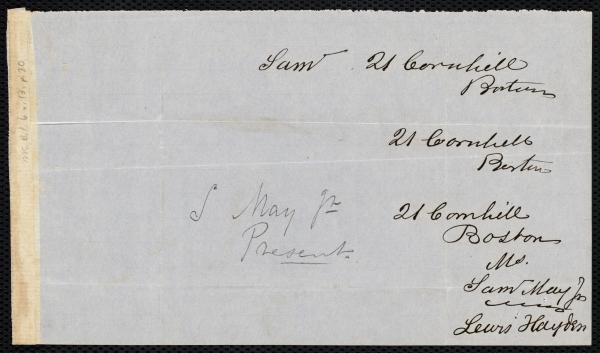 Saml 21 Cornhill
Boston
21 Cornhill
Boston
S May Jr
Present.
21 Cornhill
Boston
Ms.
Saml May Jr
Lewis Hayden